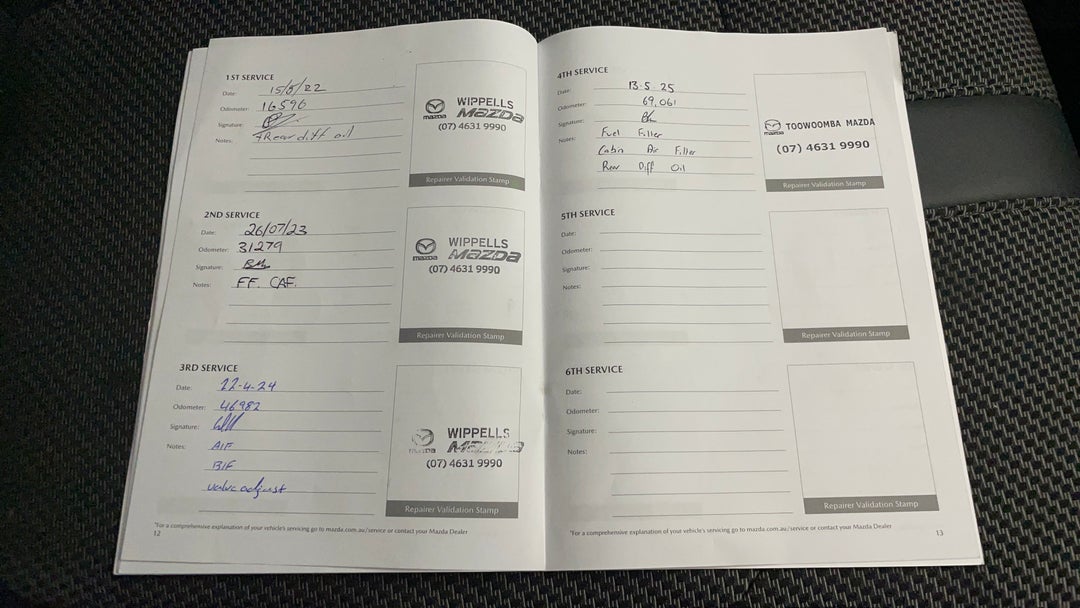 1ST SERVICE
Date: 15/8/22
Odometer: 16596
Signature:
Notes: + Rear diff oil
WIPPELLS
mazda MAZDA
(07) 4631 9990
Repairer Validation Stamp
2ND SERVICE
Date: 26/07/23
Odometer: 31279
Signature:
Notes: FF. CAF.
WIPPELLS
mazda MAZDA
(07) 4631 9990
Repairer Validation Stamp
3RD SERVICE
Date: 22-4-24
Odometer: 46982
Signature:
Notes: AIF
BIF
valve adjust
WIPPELLS
mazda MAZDA
(07) 4631 9990
Repairer Validation Stamp
*For a comprehensive explanation of your vehicle's servicing go to mazda.com.au/service or contact your Mazda Dealer
12
4TH SERVICE
Date: 13.5 25
Odometer: 69,061
Signature:
Notes: Fuel Filler
Cabin Air Filter
Rear Diff Oil
TOOWOOMBA MAZDA
mazda
(07) 4631 9990
Repairer Validation Stamp
5TH SERVICE
Date:
Odometer:
Signature:
Notes:
Repairer Validation Stamp
6TH SERVICE
Date:
Odometer:
Signature:
Notes:
Repairer Validation Stamp
*For a comprehensive explanation of your vehicle's servicing go to mazda.com.au/service or contact your Mazda Dealer
13